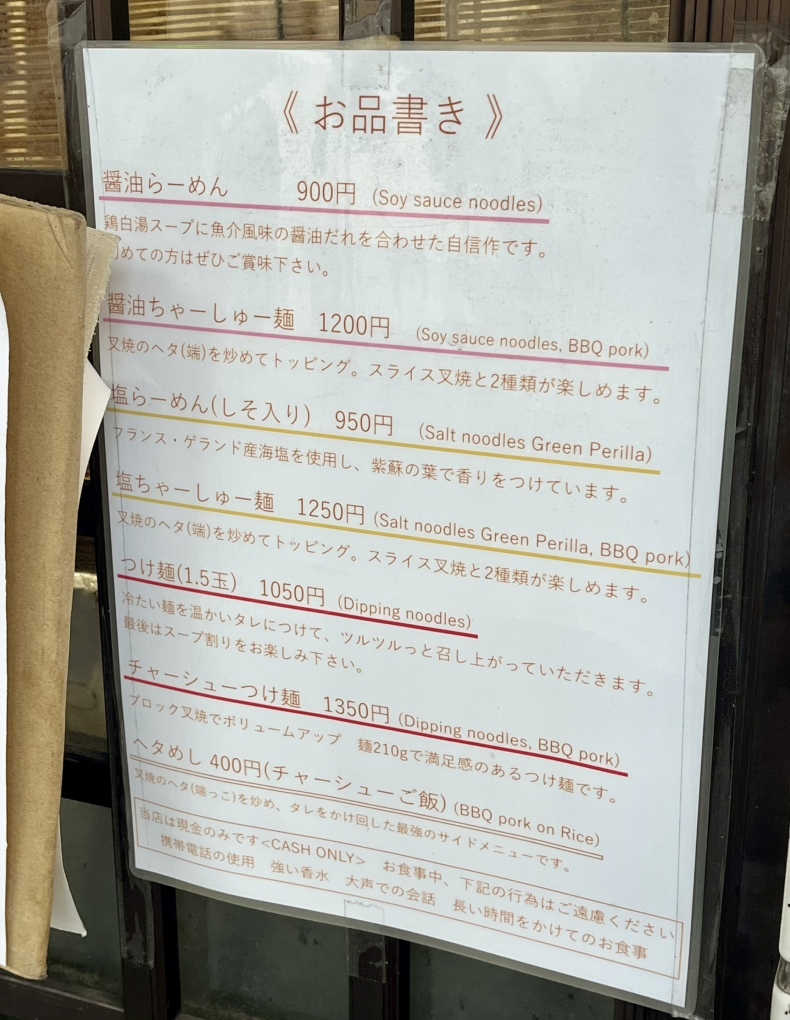 《 お品書き 》
醤油らーめん 900円 (Soy sauce noodles)
鶏白湯スープに魚介風味の醤油だれを合わせた自信作です。
めての方はぜひご賞味下さい。
醤油ちゃーしゅー麺 1200円 (Soy sauce noodles, BBQ pork)
叉焼のヘタ(端)を炒めてトッピング。スライス叉焼と2種類が楽しめます。
塩らーめん(しそ入り) 950円 (Salt noodles Green Perilla)
フランス・ゲランド産海塩を使用し、紫蘇の葉で香りをつけています。
塩ちゃーしゅー麺 1250円 (Salt noodles Green Perilla, BBQ pork)
叉焼のヘタ(端)を炒めてトッピング。スライス叉焼と2種類が楽しめます。
つけ麺(1.5玉) 1050円 (Dipping noodles)
冷たい麺を温かいタレにつけて、ツルツルっと召し上がっていただきます。
最後はスープ割りをお楽しみ下さい。
チャーシューつけ麺 1350円 (Dipping noodles, BBQ pork)
ブロック叉焼でボリュームアップ 麺210gで満足感のあるつけ麺です。
ヘタめし 400円(チャーシューご飯) (BBQ pork on Rice)
叉焼のヘタ(端っこ)を炒め、タレをかけ回した最強のサイドメニューです。
当店は現金のみです<CASH ONLY> お食事中、下記の行為はご遠慮ください
携帯電話の使用 強い香水 大声での会話 長い時間をかけてのお食事